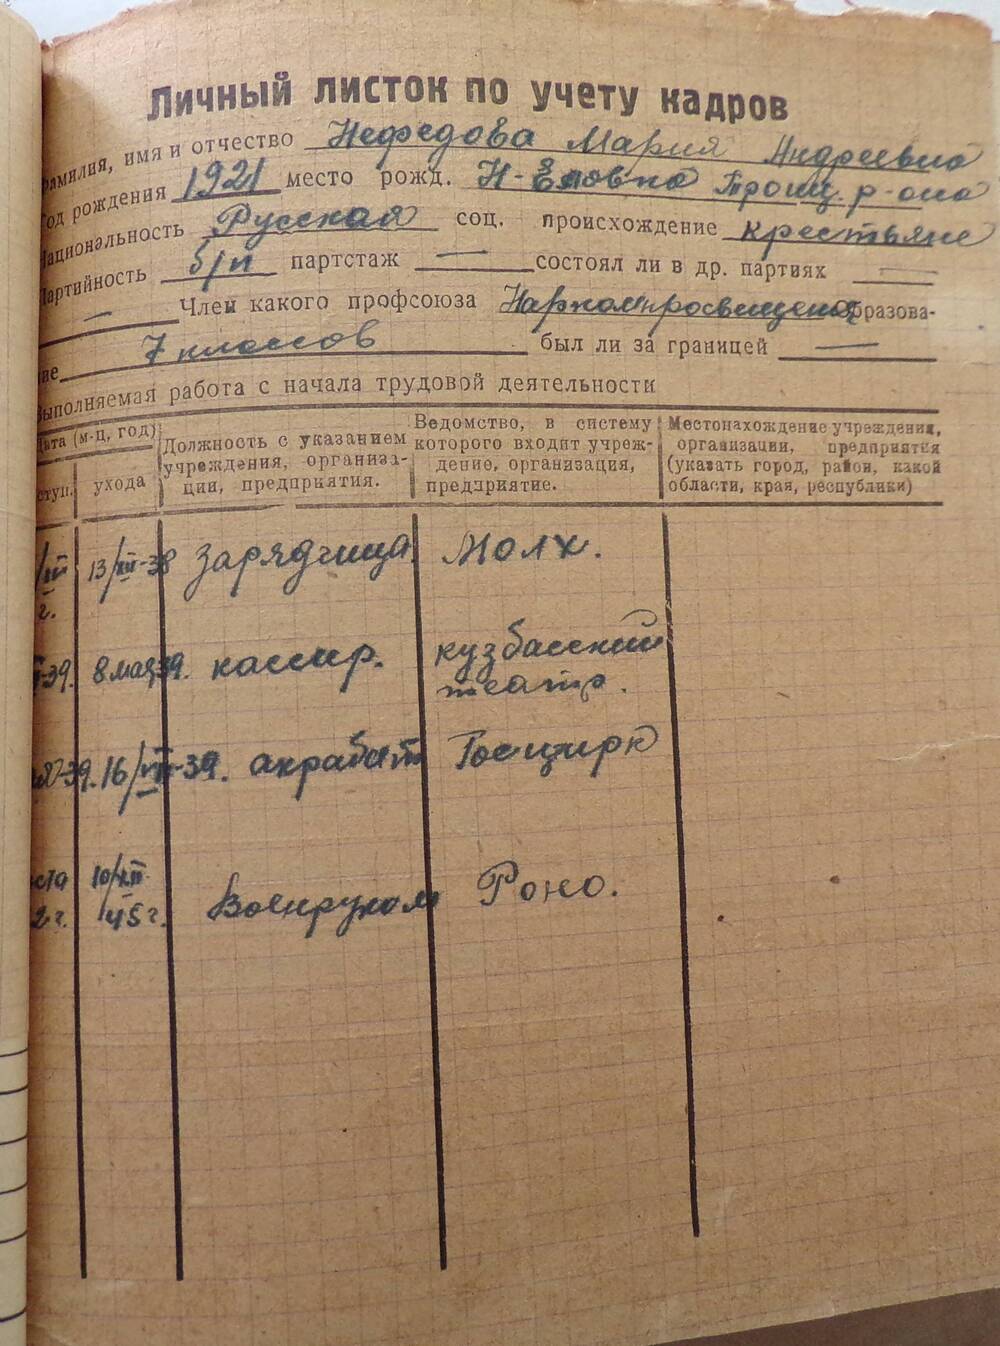 Личный листок по учету кадров
Фамилия, имя и отчество Нефедова Мария Андреевна
Год рождения 1921 место рожд. Н-Еловка Троиц. р-она
Национальность Русская соц. происхождение крестьяне
Партийность б/п партстаж — состоял ли в др. партиях —
— Член какого профсоюза Наркомпросвещения образова-
ние 7 классов был ли за границей —
Выполняемая работа с начала трудовой деятельности
Дата (м-ц, год)
ступ. ухода
Должность с указанием
учреждения, организа-
ции, предприятия.
Ведомство, в систему
которого входит учреж-
дение, организация,
предприятие.
Местонахождение учреждения,
организации, предприятия
(указать город, район, какой
области, края, республики)
/III г. 13/XII-38 зарядчица. Молх.
-39. 8 мая 39. кассир. кузбасский
театр.
-39. 16/VII-39. акрабат Госцирк
ста 10/XII
2 г. 45 г. Военруком Роно.